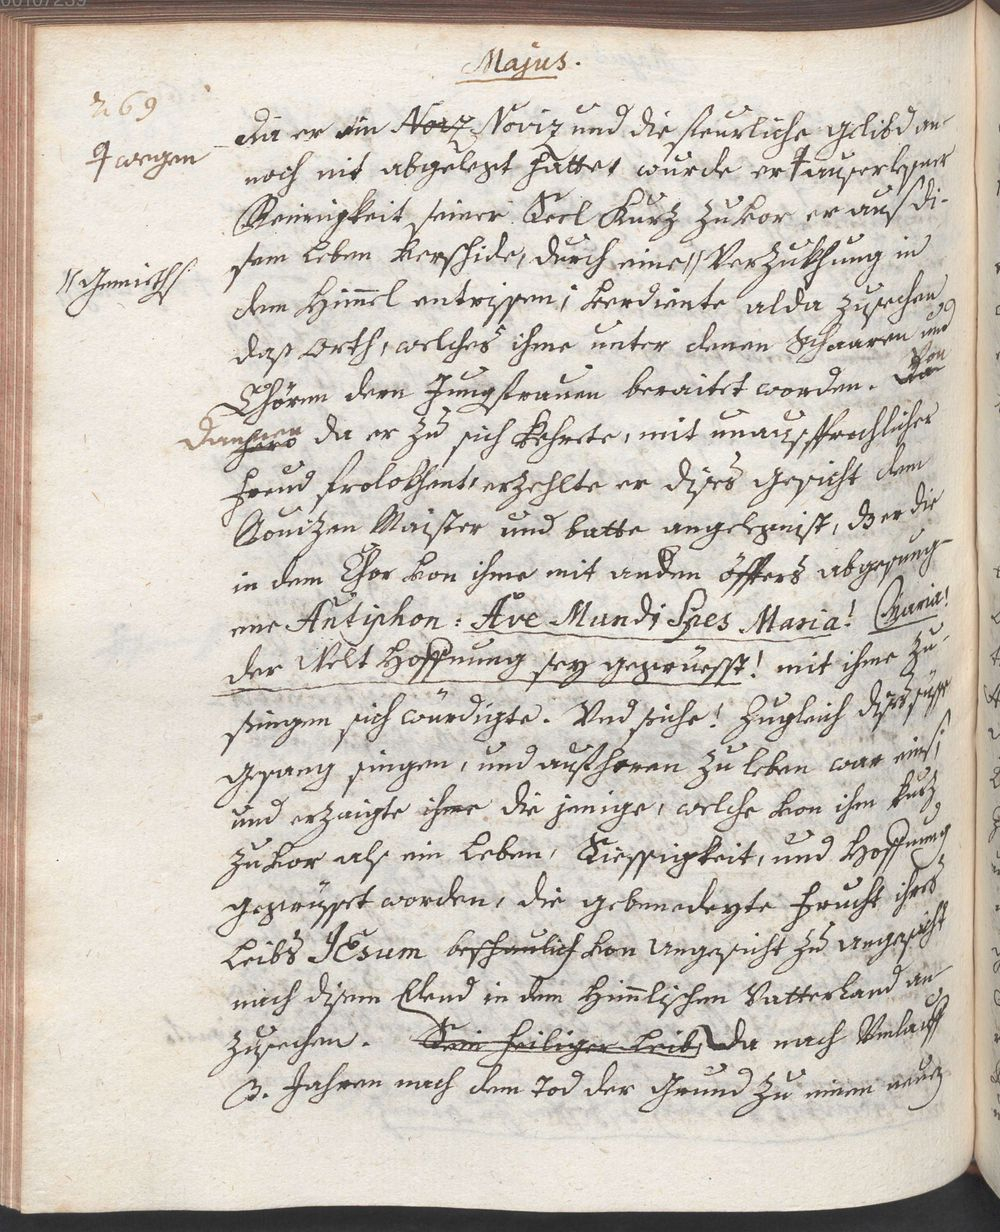 Majus.
269
da er ein Noviz und die feurliche gelibd an-
☿ wegen
noch nit abgelegt hatte, wurde er ☿ auserlesner
Reinigkeit seiner Seel kurz zuvor er auß di-
sem leben verschide, durch eine // Verzukhung in
// Gemieths
dem Himmel entrissen; verdiente alda zusechen
das Orth, welches ihme unter denen Schaaren und
Chören dern Jungfrauen beraitet worden. Von
Dannen da er zu sich kehrete, mit unaussprechlicher
freud frolokhent, erzehlte er dises gesicht dem
Novitzen Maister und batte angelegnist, dz er die
in dem Chor von ihme mit andern öffters abgesung-
ene Antiphon: Ave Mundi Spes Maria! Maria!
der Welt Hoffnung sey gegrüesst! mit ihme zu
singen sich würdigte. Und siehe! zugleich dises süsse
gesang singen, und aufhören zu leben war eins;
und erzaigte ihme die jenige, welche von ihm kurz
zuvor als ein Leben, Siessigkeit, und Hoffnung
gegrüsset worden, die gebenedeyte frucht ihres
Leibs JEsum beschaulich von angesicht zu angesicht
nach disem Elend in dem Himmlischen Vatterland an-
zusechen. Sein heiliger Leib, da nach Verlauff
3. Jahren nach dem Tod der Grund zu einem neuen